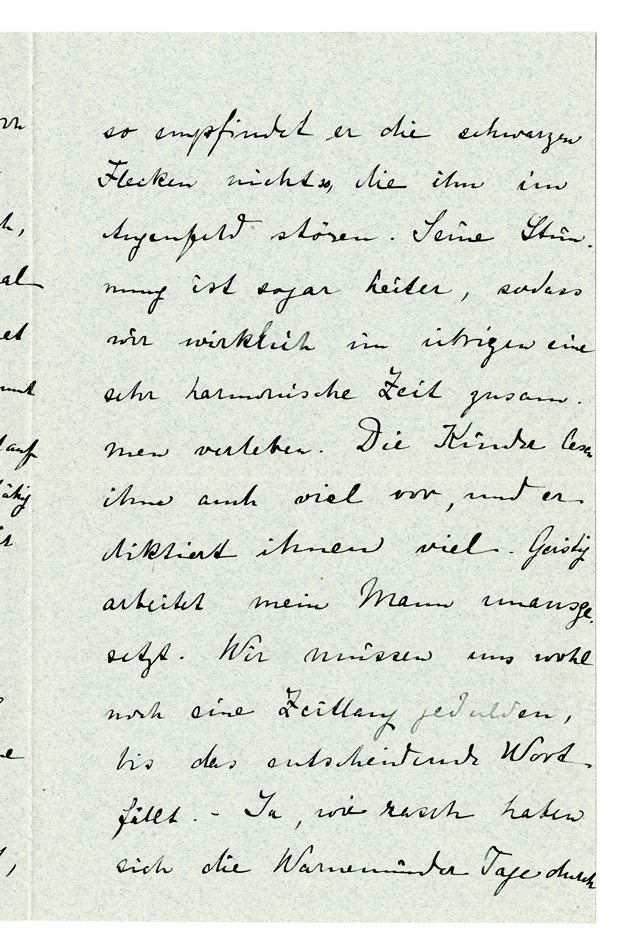 so empfindet er die schwarzen
Flecken nichts, die ihn im
Augenfeld stören. Seine Stim-
mung ist sogar heiter, sodass
wir wirklich im übrigen eine
sehr harmonische Zeit zusam-
men verleben. Die Kinder lesen
ihm auch viel vor, und er
diktiert ihnen viel. Geistig
arbeitet mein Mann unausge-
setzt. Wir müssen uns wohl
noch eine Zeitlang gedulden,
bis das entscheidende Wort
fällt. - Ja, wie rasch haben
sich die Warnemünder Tage durch